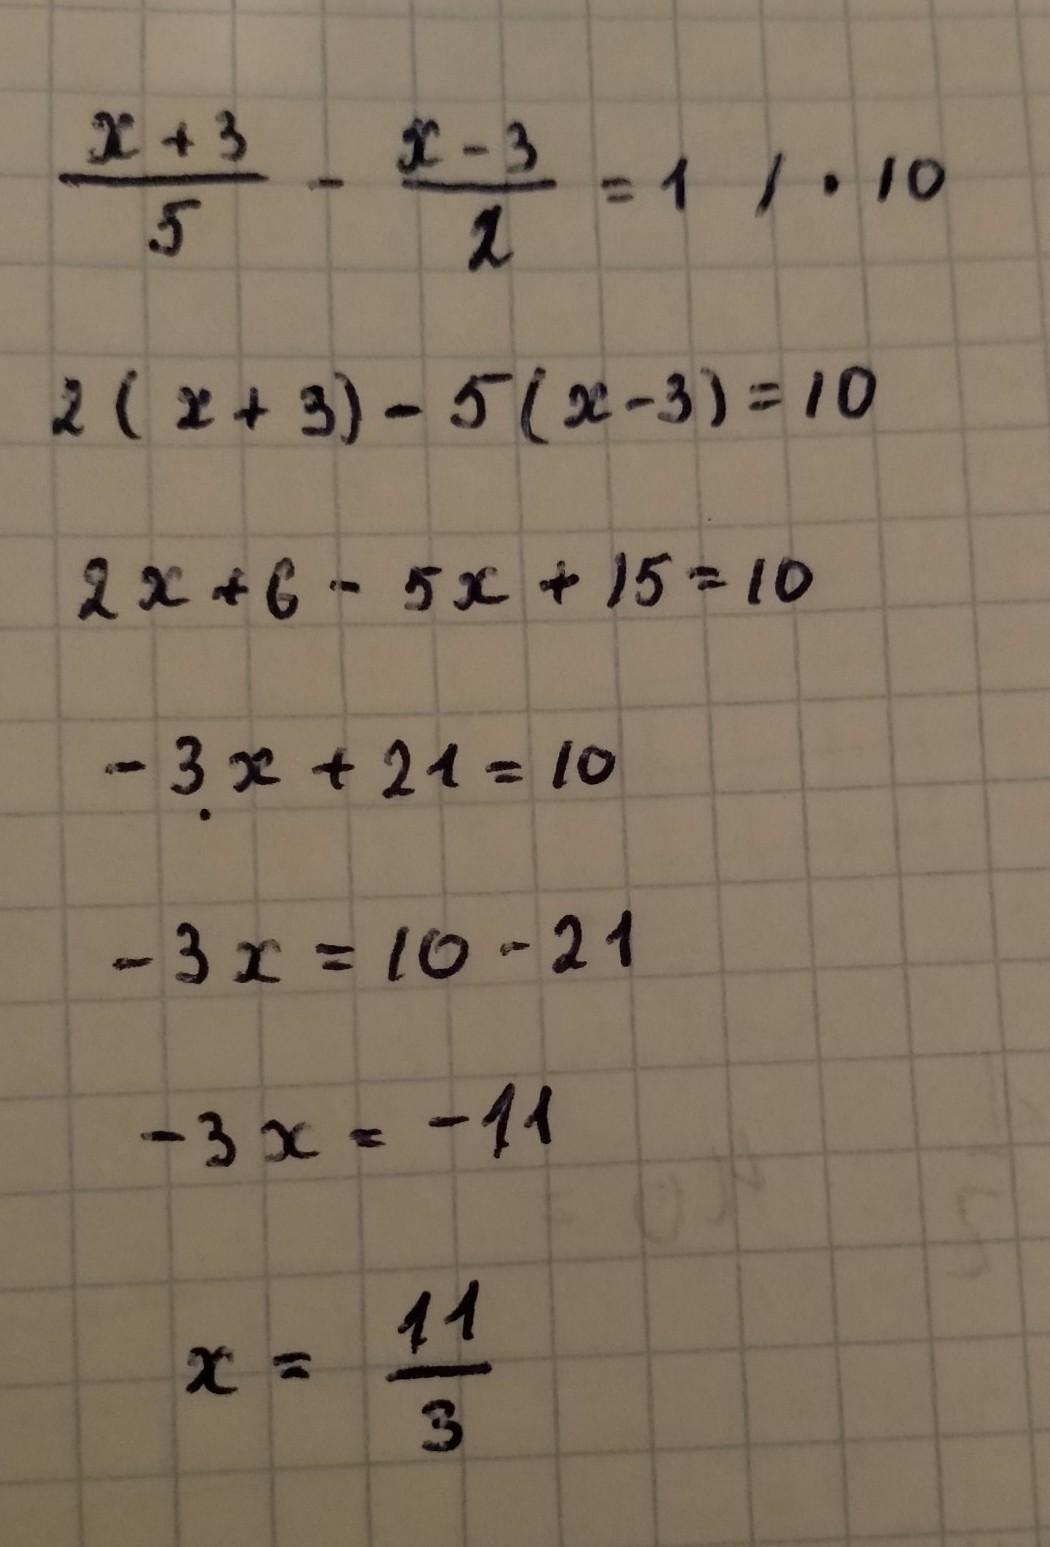 (x + 3)/5 - (x - 3)/2 = 1 / · 10
2(x + 3) - 5(x - 3) = 10
2x + 6 - 5x + 15 = 10
-3x + 21 = 10
-3x = 10 - 21
-3x = -11
x = 11/3